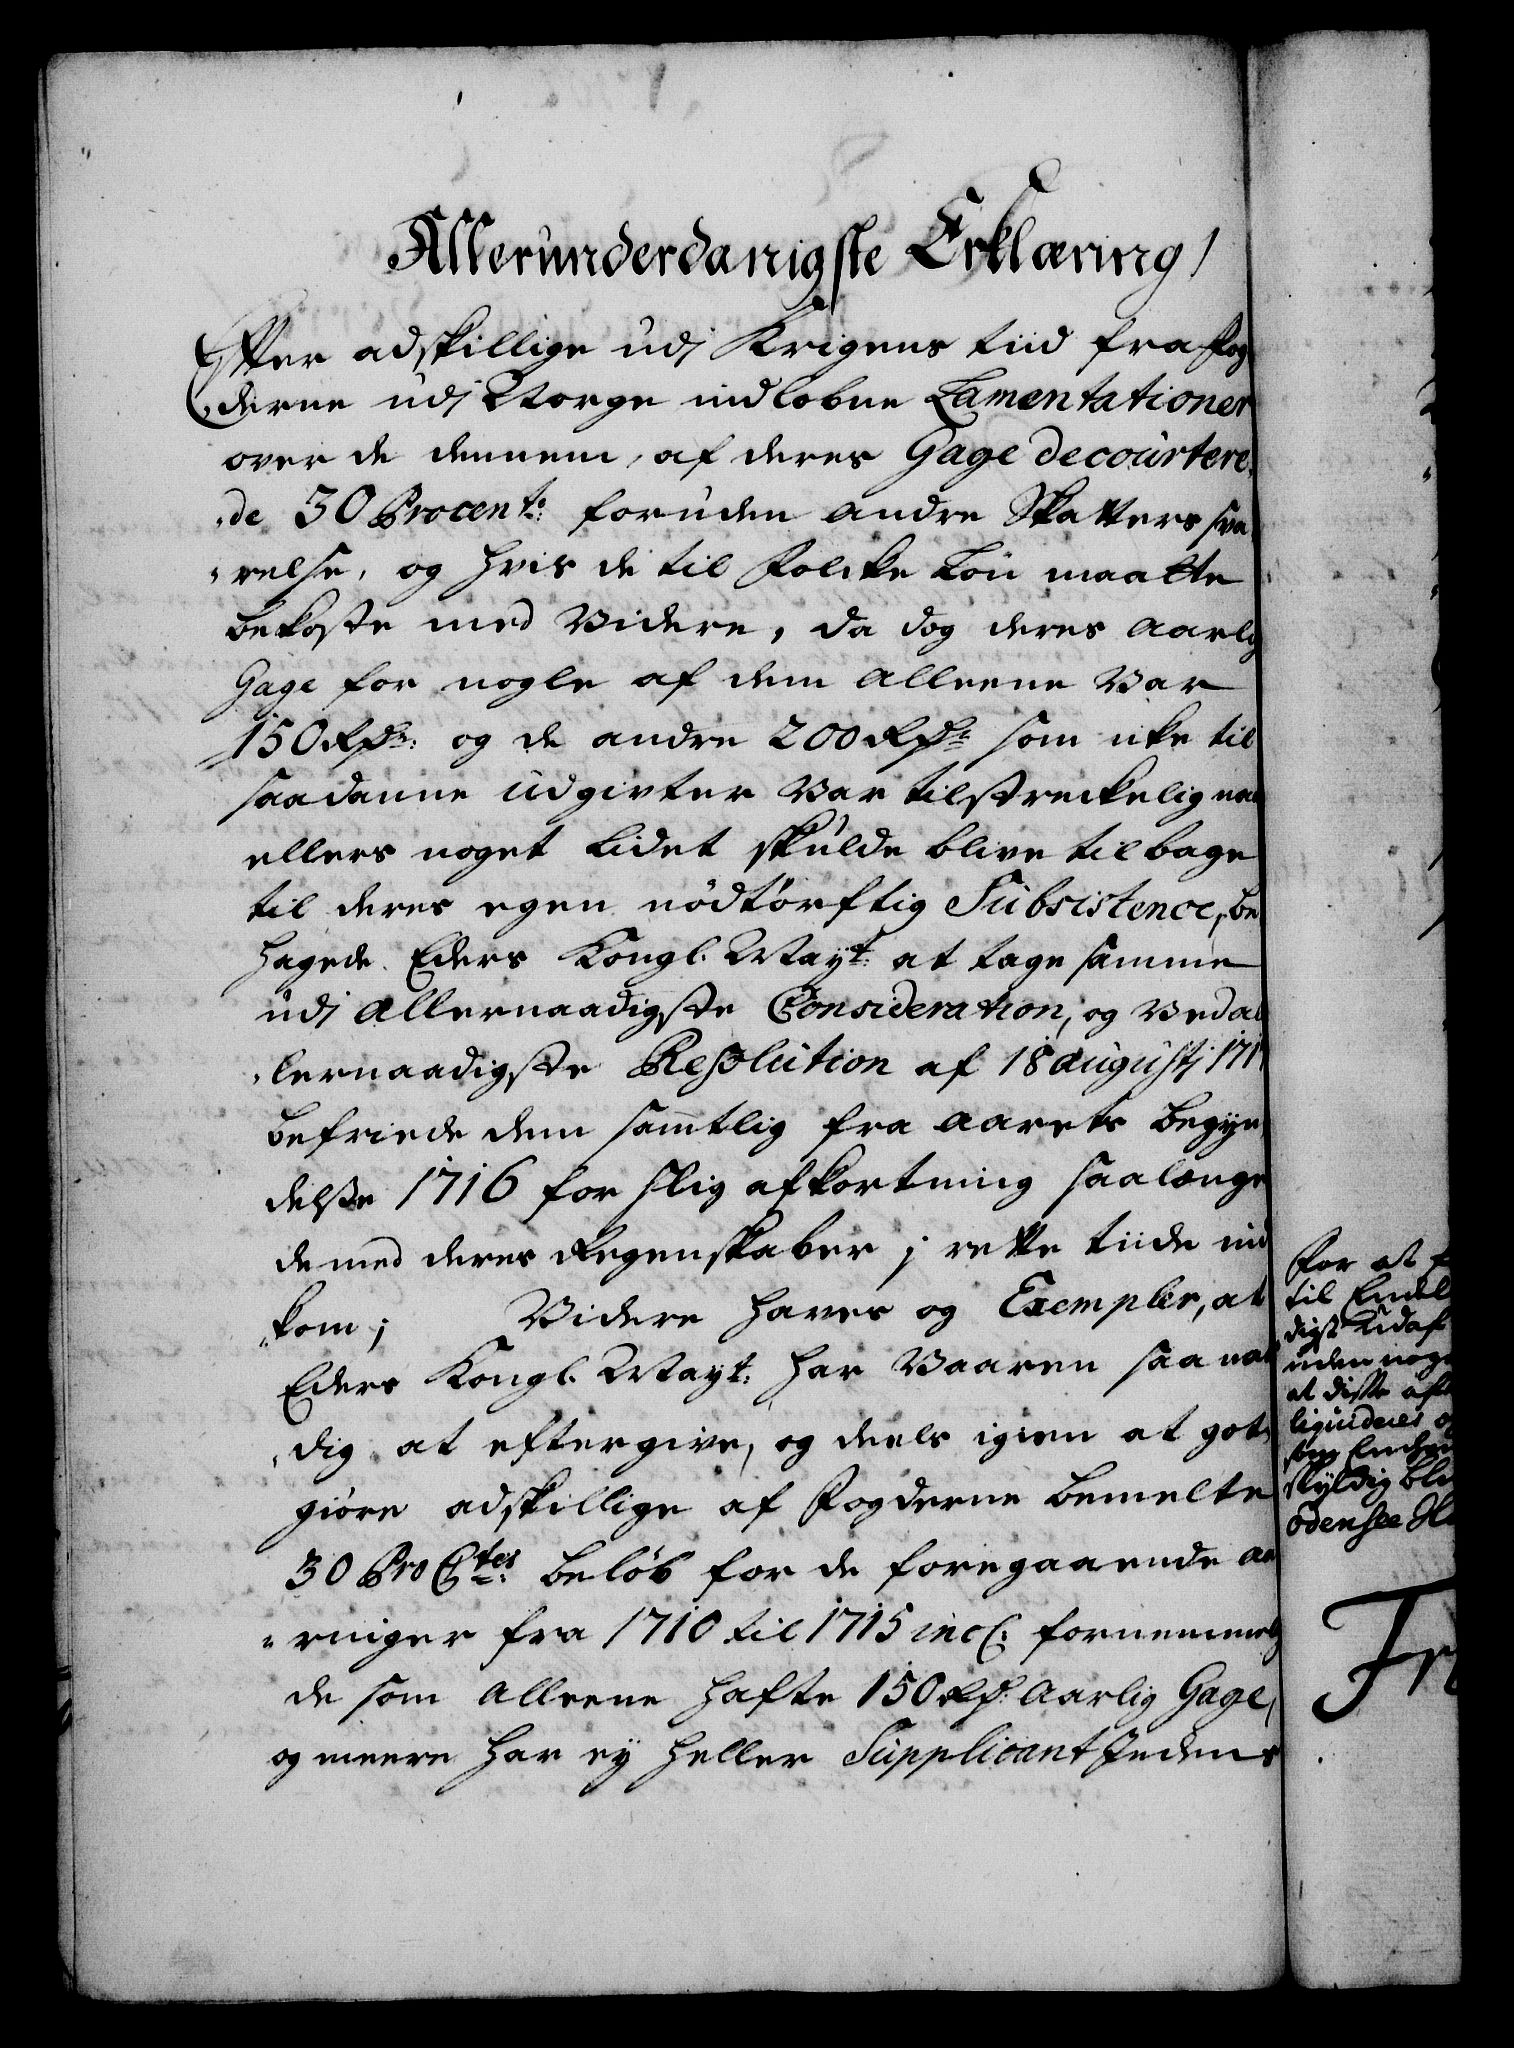 Allerunderdanigste Erklæring!
Efter adskillige udj Krigens tiid fra Fog
derne udj Norge indlobne Lamentationer
over de dennem, af deres Gage decourtere,
,de 30 Procento: foruden andre Skatters sva,
,relse, og hvis de til Folcke Løn maatte
bekoste med Videre, da dog deres aarlig
Gage for nogle af dem alleene Var
150 Rdr: og de andre 200 Rdr som icke til
saadanne udgivter Var tilstreckelig naar
ellers noget Lidet skulde blive tilbage
til deres egen nödtörftig Subsistence, be
hagede Eders Kongl. Mayt: at tage samme
udj allernaadigste Consideration, og Ved al
,lernaadigste Resolution af 18 augustj 171
befriede dem samtlig fra aarets begyn,
delse 1716 for slig afkortning saalænge
de med deres Regenskaber j rette tiide ind
,kom; Videre haves og Exempler, at
Eders Kongl. Mayt: har Vaaren saa naa
,dig at eftergive, og deels igien at got,
giøre adskillige af Fogderne bemelte
30 Pro Ctes: beløb for de foregaaende aa
,ringer fra 1710 til 1715 incl: fornemmelig
de som alleene hafte 150 Rdr: aarlig Gage,
og meere har ey heller Supplicant Jedens
For at
til Endel
digst Udaf
uden noge
at diste aft
liquideres
skyldig ble
Odensee
Fr